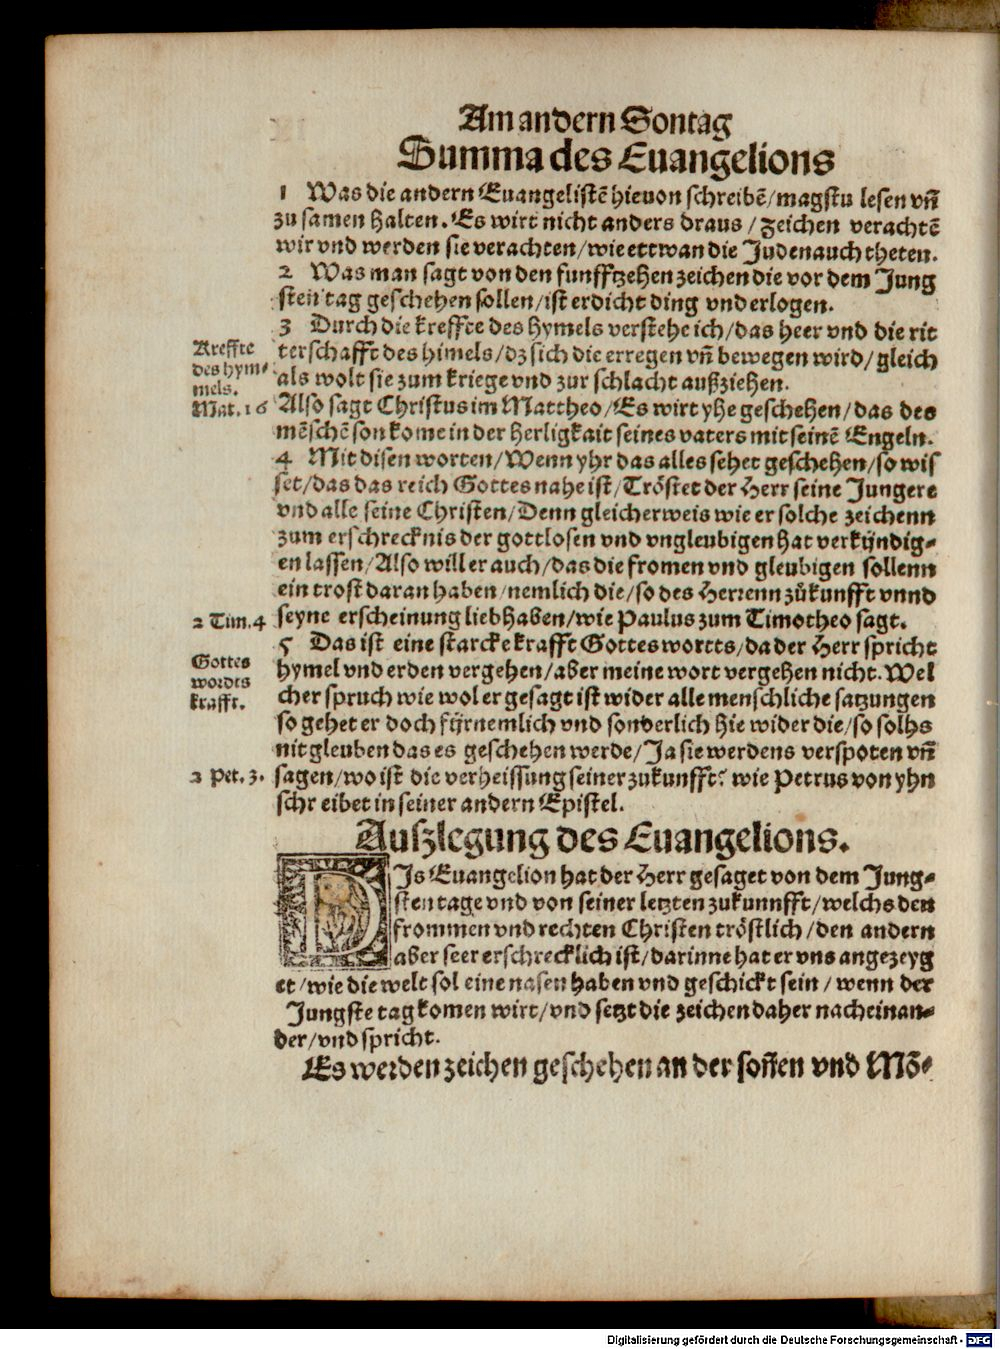 Am andern Sontag
Summa des Euangelions
1 Was die andern Euangelistẽ hieuon schreibẽ/magstu lesen vñ
zu samen halten. Es wirt nicht anders draus / zeichen verachtẽ
wir vnd werden sie verachten/wie ettwan die Juden auch theten.
2 Was man sagt von den funfftzehen zeichen die vor dem Jung
sten tag geschehen sollen/ist erdicht ding vnd erlogen.
3 Durch die kreffte des hymels verstehe ich/das heer vnd die rit
Kreffte
des hym-
mels.
terschafft des himels/dz sich die erregen vñ bewegen wird/gleich
als wolt sie zum kriege vnd zur schlacht außziehen.
Mat. 16
Also sagt Christus im Mattheo/Es wirt yhe geschehen/das des
mẽschẽ son kome in der herligkait seines vaters mit seinẽ Engeln.
4 Mit disen worten/Wenn yhr das alles sehet geschehen/so wis
set/das das reich Gottes nahe ist/Tröstet der Herr seine Jungere
vnd alle seine Christen/Denn gleicherweis wie er solche zeichenn
zum erschrecknis der gottlosen vnd vngleubigen hat verkündig-
en lassen/Also will er auch/das die fromen vnd gleubigen sollenn
ein trost daran haben/nemlich die/so des Herrenn zůkunfft vnnd
2 Tim. 4
seyne erscheinung lieb haben/wie Paulus zum Timotheo sagt.
5 Das ist eine starcke krafft Gottes wortts/da der Herr spricht
Gottes
wordts
krafft.
hymel vnd erden vergehen/aber meine wort vergehen nicht. Wel
cher spruch wie wol er gesagt ist wider alle menschliche satzungen
so gehet er doch fürnemlich vnd sonderlich hie wider die/so solhs
nit gleuben das es geschehen werde/Ja sie werdens verspoten vñ
2 Pet. 3.
sagen/wo ist die verheissung seiner zukunfft? wie Petrus von yhn
schreibet in seiner andern Epistel.
Auszlegung des Euangelions.
DJs Euangelion hat der Herr gesaget von dem Jung-
sten tage vnd von seiner letzten zukunnfft/welchs den
frommen vnd rechten Christen tröstlich/den andern
aber seer erschrecklich ist/darinne hat er vns angezeyg
et/wie die welt sol eine nasen haben vnd geschickt sein / wenn der
Jungste tag komen wirt/vnd setzt die zeichen daher nacheinan-
der/vnd spricht.
Es werden zeichen geschehen an der soñen vnd Mõ-
Digitalisierung gefördert durch die Deutsche Forschungsgemeinschaft - DFG